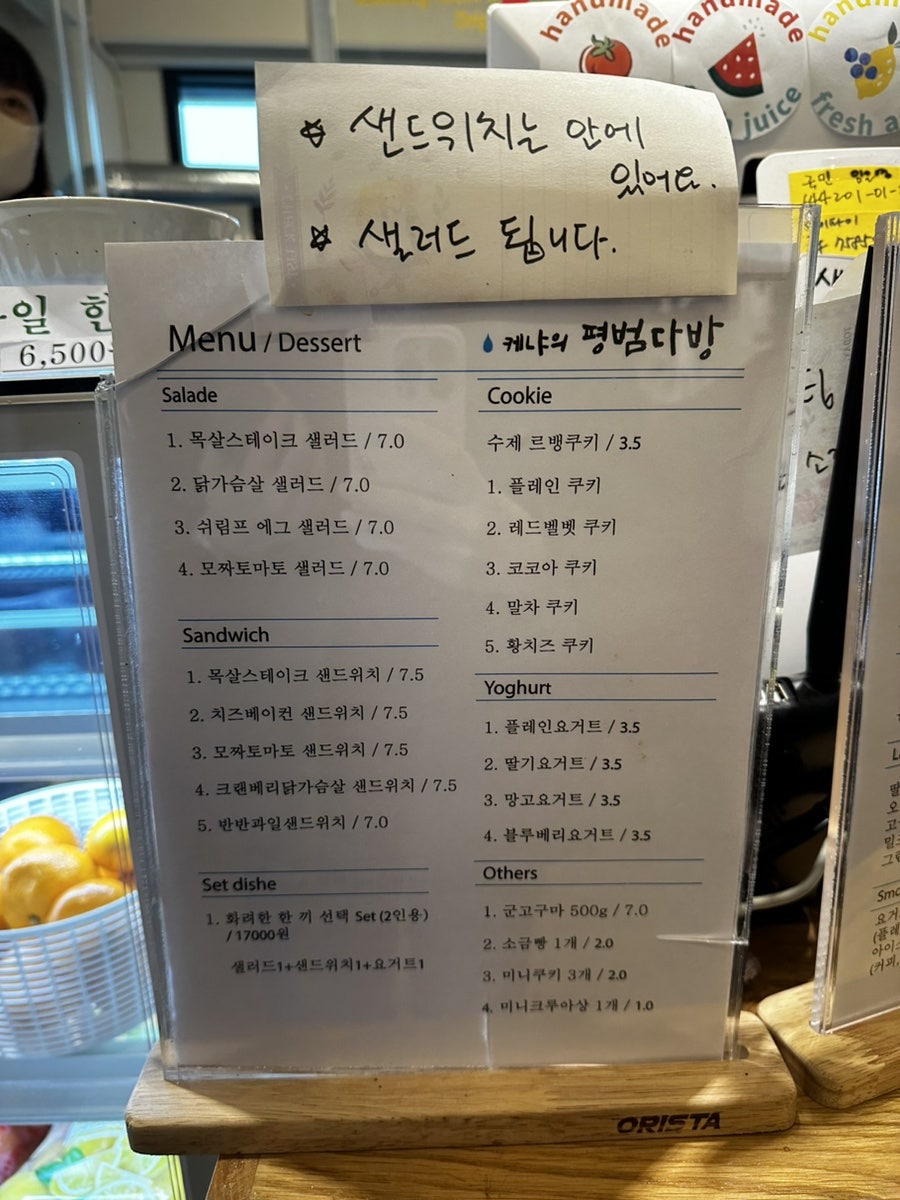 handmade
handmade
handmade
juice
fresh a
☆ 샌드위치는 안에
있어요.
☆ 샐러드 됩니다.
일 한
6,500
Menu / Dessert
케냐의 평범다방
Salade
1. 목살스테이크 샐러드 / 7.0
2. 닭가슴살 샐러드 / 7.0
3. 쉬림프 에그 샐러드 / 7.0
4. 모짜토마토 샐러드 / 7.0
Sandwich
1. 목살스테이크 샌드위치 / 7.5
2. 치즈베이컨 샌드위치 / 7.5
3. 모짜토마토 샌드위치 / 7.5
4. 크랜베리닭가슴살 샌드위치 / 7.5
5. 반반과일샌드위치 / 7.0
Set dishe
1. 화려한 한 끼 선택 Set (2인용)
/ 17000원
샐러드1+샌드위치1+요거트1
Cookie
수제 르뱅쿠키 / 3.5
1. 플레인 쿠키
2. 레드벨벳 쿠키
3. 코코아 쿠키
4. 말차 쿠키
5. 황치즈 쿠키
Yoghurt
1. 플레인요거트 / 3.5
2. 딸기요거트 / 3.5
3. 망고요거트 / 3.5
4. 블루베리요거트 / 3.5
Others
1. 군고구마 500g / 7.0
2. 소금빵 1개 / 2.0
3. 미니쿠키 3개 / 2.0
4. 미니크루아상 1개 / 1.0
ORISTA